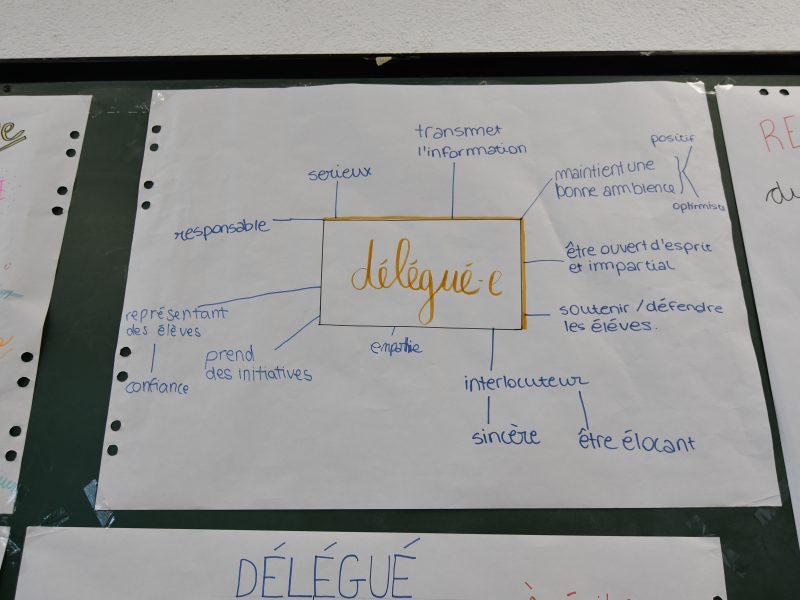 transmet
l'information
serieux
maintient une
bonne ambience
positif
optimiste
responsable
délégué·e
être ouvert d'esprit
et impartial
représentant
des élèves
confiance
prend
des initiatives
empathie
soutenir / défendre
les élèves.
interlocuteur
sincère
être élocant
RE
du
DÉLÉGUÉ